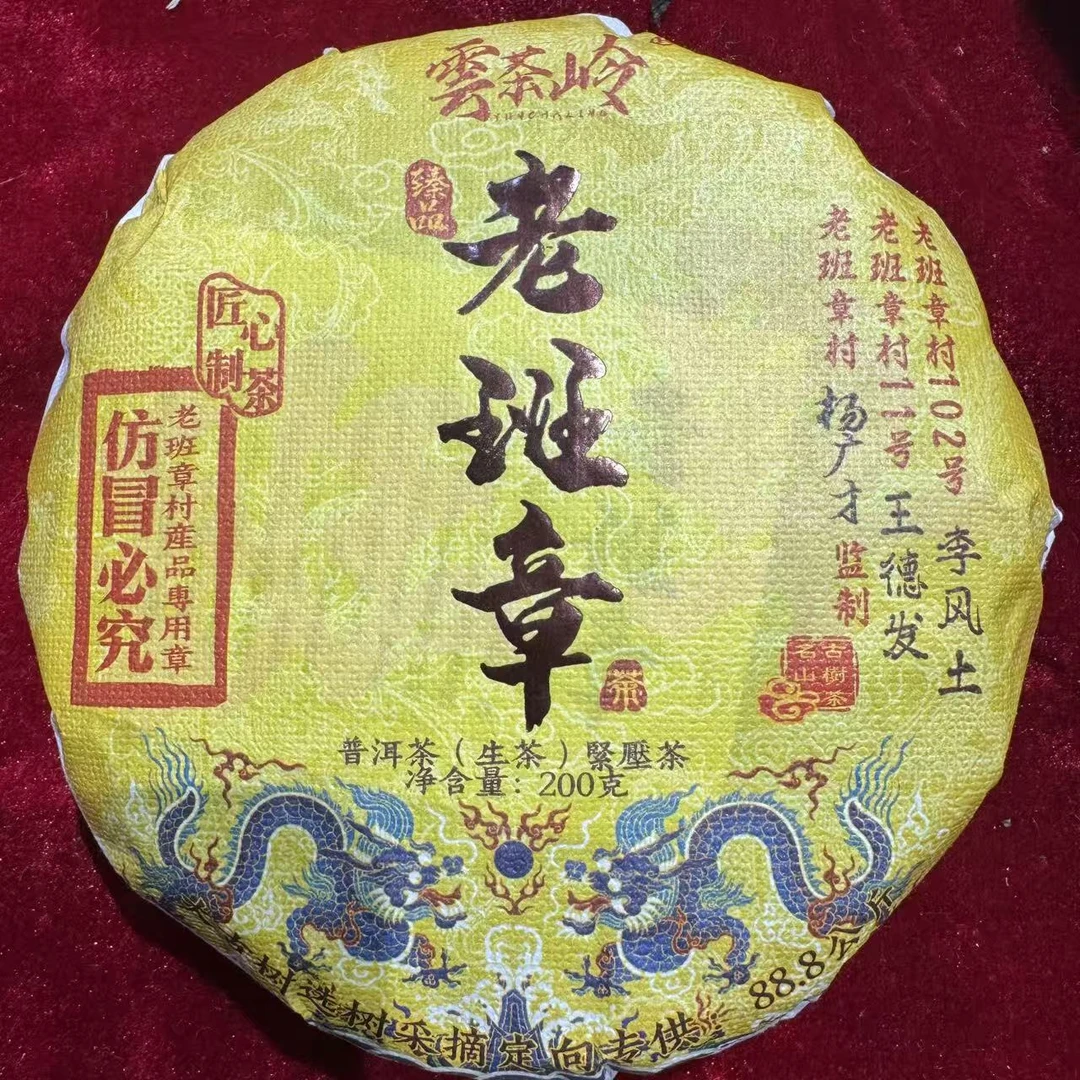 雲茶岭
YUNCHALING
臻品
老班章
茶
老班章村102号 李风土
老班章村11号 王德发
老班章村 杨广才 监制
古樹茶
名山
匠心
制茶
老班章村産品專用章
仿冒必究
普洱茶（生茶）緊壓茶
净含量：200克
树选树采摘定向专供
88.8公斤